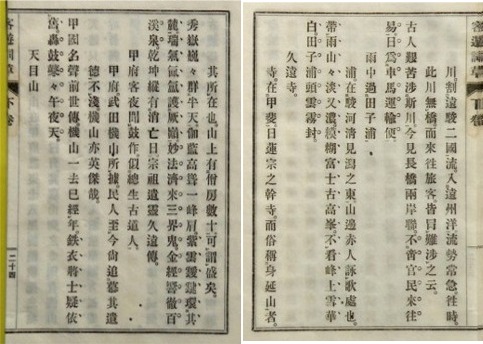 川、割遠駿二國流、入遠州洋流勢常急、往時、
此川無橋而來往旅客、皆曰難涉之云、
古人艱苦涉斯川、今見長橋兩岸聯、不啻官民來往
易、日爲車馬運輸便、
雨中過田子浦
浦、在駿河淸見潟之東山邊赤人詠歌處也、
帶雨山々淡又濃、模糊富士古高峯、不看峰上雪華
白、田子浦頭雲霧封、
久遠寺
寺、在甲斐日蓮宗之幹寺、而俗稱身延山者、
其所在也、山上有僧房數十、可謂盛矣、
秀嶽巍々群半天、伽藍高聳一峰肩、紫雲靉靆環其
麓、瑞氣氤氳護厥嶺、妙法濟來三界鬼、金經響徹百
溪泉、乾坤縱有消亡日、宗祖遺靈久遠傳、
甲府客夜聞鼓作似總生古道人、
甲府武田機山所據、民人至今尙追慕其遺
德、不淺機山亦英傑哉、
甲國名聲前世傳、機山一去已經年、鉄衣將士疑依
舊、轟鼓擊々午夜天、
天目山
下卷
二十四